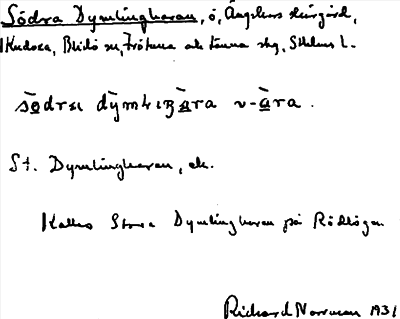 Södra Dymlingharan, ö, Ängskärs skärgård,
Kudoxa, Blidö sn, Frötuna och Länna skg, Sthlms l.
södra dymliŋara v-ara.
St. Dymlingharan, ek.
Kallas Stora Dymlingharan på Rödlöga
Richard Norrman 1931